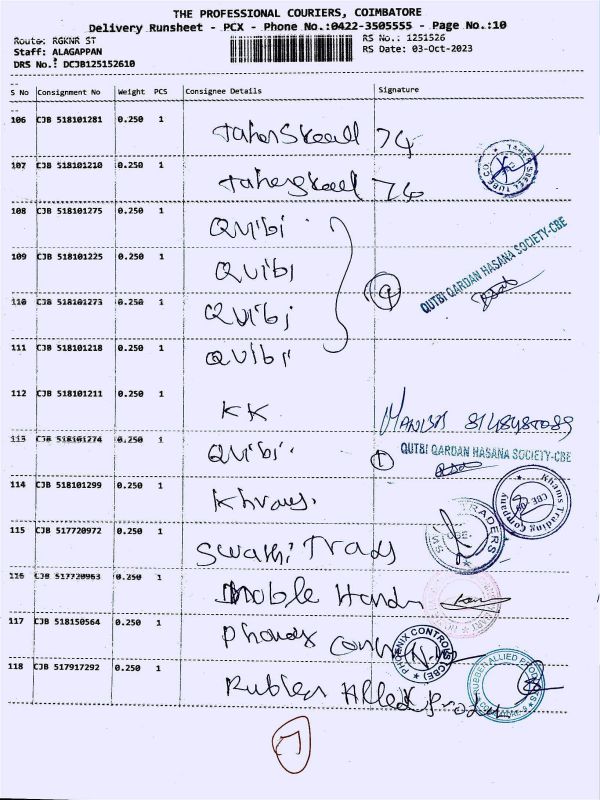 THE PROFESSIONAL COURIERS, COIMBATORE
Delivery Runsheet - PCX - Phone No.:0422-3505555 - Page No.:10
Route: RGKNR ST RS No.: 1251526
Staff: ALAGAPPAN RS Date: 03-Oct-2023
DRS No.: DCJB125152610
S No Consignment No Weight PCS Consignee Details Signature
106 CJB 518101281 0.250 1 74
107 CJB 518101210 0.250 1 74
108 CJB 518101275 0.250 1 Quibi
109 CJB 518101225 0.250 1 Quibi QUTBI QARDAN HASANA SOCIETY-CBE
110 CJB 518101273 0.250 1 Quibi
111 CJB 518101218 0.250 1 Quibi
112 CJB 518101211 0.250 1 KK
113 CJB 518101274 0.250 1 Quibi QUTBI QARDAN HASANA SOCIETY-CBE
114 CJB 518101299 0.250 1 Khams Trading Company
115 CJB 517720972 0.250 1 Swathi Trads TRADERS
116 CJB 517720963 0.250 1
117 CJB 518150564 0.250 1 PHOENIX CONTROLS (CBE)
118 CJB 517917292 0.250 1 Rubben Allied